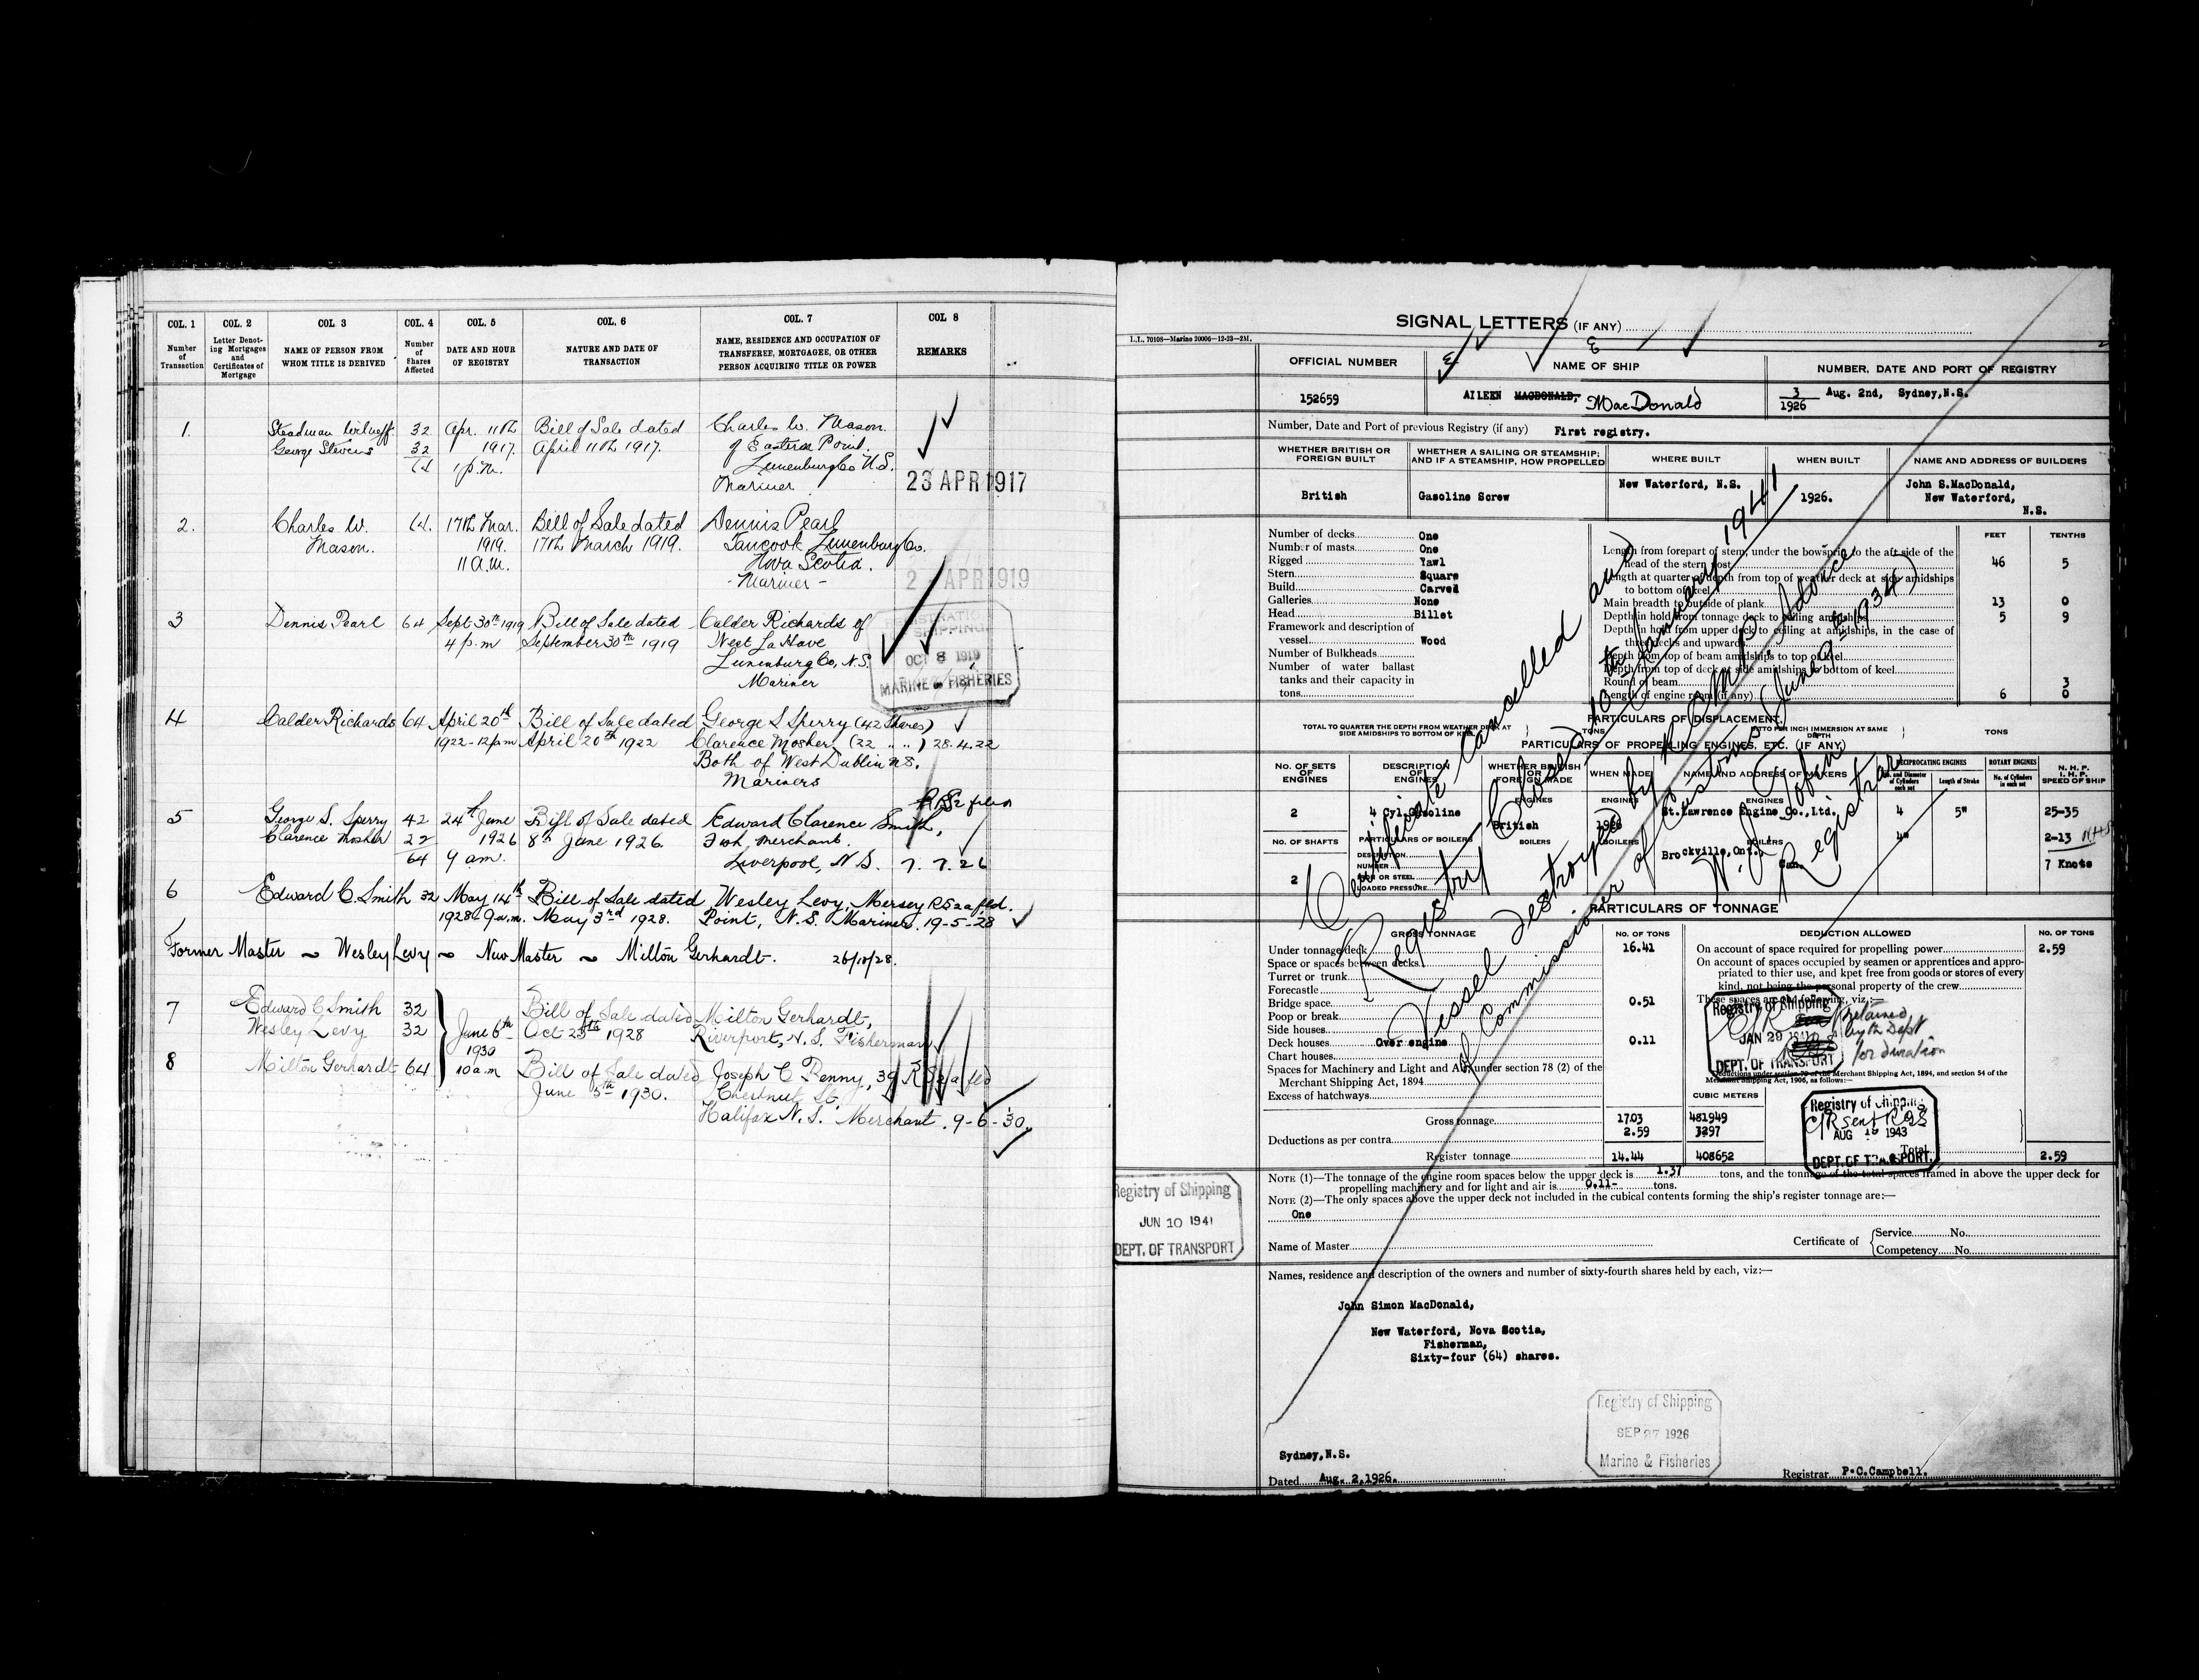 COL. 1 COL. 2 COL. 3 COL. 4 COL. 5 COL. 6 COL. 7 COL. 8
Number of Transaction
Letter Denoting Mortgages and Certificates of Mortgage
NAME OF PERSON FROM WHOM TITLE IS DERIVED
Number of Shares Affected
DATE AND HOUR OF REGISTRY
NATURE AND DATE OF TRANSACTION
NAME, RESIDENCE AND OCCUPATION OF TRANSFEREE, MORTGAGEE, OR OTHER PERSON ACQUIRING TITLE OR POWER
REMARKS
1. Steadman 32 Apr. 11th Bill of Sale dated Charles W. Mason
George Stevens 32 1917. April 11th 1917. of Eastern Point
64 1 p.m. Lunenburg Co N.S.
Mariner 23 APR 1917
2. Charles W. 64. 17th Mar. Bill of Sale dated Dennis Pearl
Mason. 1919. 17th March 1919. Tancook Lunenburg Co.
11 a.m. Nova Scotia.
- Mariner - 2 APR 1919
3 Dennis Pearl 64 Sept 30th 1919 Bill of Sale dated Calder Richards of
4 p.m September 30th 1919 West La Have
Lunenburg Co, N.S.
Mariner
OCT 8 1919
MARINE & FISHERIES
4 Calder Richards 64 April 20th Bill of Sale dated George S Sperry (42 Shares)
1922-12 pm April 20th 1922 Clarence Mosher (22 " ") 28.4.22
Both of West Dublin N.S.
Mariners
5 George S. Sperry 42 24th June Bill of Sale dated Edward Clarence Smith,
Clarence Mosher 22 1926 8th June 1926. Fish Merchant.
64 9 am. Liverpool, N.S. 7.7.26
6 Edward C. Smith 32 May 14th Bill of Sale dated Wesley Levy, Mersey R.S 2a fld.
1928-9 a.m. May 3rd 1928. Point, N.S. Mariner. 19-5-28
Former Master ~ Wesley Levy ~ New Master ~ Milton Gerhardt. 26/10/28.
7 Edward C Smith 32 Bill of Sale dated Milton Gerhardt,
Wesley Levy 32 June 6th Oct 25th 1928 Riverport, N.S. Fisherman
1930
8 Milton Gerhardt 64 10 a.m Bill of Sale dated Joseph C Penny, 39 RS2a fld
June 5th 1930. Chestnut St.
Halifax N.S. Merchant. 9-6-30.
SIGNAL LETTERS (IF ANY)
L.L. 70108—Marine 20006—12-23—2M.
OFFICIAL NUMBER NAME OF SHIP NUMBER, DATE AND PORT OF REGISTRY
152659 AILEEN MACDONALD, MacDonald 3/1926 Aug. 2nd, Sydney, N.S.
Number, Date and Port of previous Registry (if any) First registry.
WHETHER BRITISH OR FOREIGN BUILT
WHETHER A SAILING OR STEAMSHIP; AND IF A STEAMSHIP, HOW PROPELLED
WHERE BUILT WHEN BUILT NAME AND ADDRESS OF BUILDERS
British Gasoline Screw New Waterford, N.S. 1926. John S.MacDonald,
New Waterford,
N.S.
FEET TENTHS
Number of decks One
Number of masts One
Rigged Yawl
Stern Square
Build Carved
Galleries None
Head Billet
Framework and description of
vessel Wood
Number of Bulkheads
Number of water ballast
tanks and their capacity in
tons
Length from forepart of stem, under the bowsprit, to the aft side of the
head of the stern post 46 5
Length at quarter of depth from top of weather deck at side amidships
to bottom of keel
Main breadth to outside of plank 13 0
Depth in hold from tonnage deck to ceiling amidships 5 9
Depth in hold from upper deck to ceiling at amidships, in the case of
three decks and upwards
Depth from top of beam amidships to top of keel
Depth from top of deck at side amidships to bottom of keel
Round of beam 3
Length of engine room (if any) 6 0
PARTICULARS OF DISPLACEMENT.
TOTAL TO QUARTER THE DEPTH FROM WEATHER DECK AT SIDE AMIDSHIPS TO BOTTOM OF KEEL TONS DITTO PER INCH IMMERSION AT SAME DEPTH TONS
PARTICULARS OF PROPELLING ENGINES, ETC. (IF ANY)
No. OF SETS OF ENGINES DESCRIPTION OF ENGINES WHETHER BRITISH OR FOREIGN MADE WHEN MADE NAME AND ADDRESS OF MAKERS
RECIPROCATING ENGINES ROTARY ENGINES
No. and Diameter of Cylinders in each set Length of Stroke No. of Cylinders in each set
N. H. P. I. H. P. SPEED OF SHIP
ENGINES ENGINES ENGINES
2 4 Cyl.Gasoline British 1926 St.Lawrence Engine Co.,Ltd. 4 5" 25-35
No. OF SHAFTS PARTICULARS OF BOILERS BOILERS BOILERS BOILERS 4" 2-13
DESCRIPTION Brockville,Ont., Can.
NUMBER
IRON OR STEEL
LOADED PRESSURE
2 7 Knots
PARTICULARS OF TONNAGE
GROSS TONNAGE No. OF TONS DEDUCTION ALLOWED No. OF TONS
Under tonnage deck 16.41
Space or spaces between decks
Turret or trunk
Forecastle
Bridge space 0.51
Poop or break
Side houses
Deck houses Over engine 0.11
Chart houses
Spaces for Machinery and Light and Air under section 78 (2) of the
Merchant Shipping Act, 1894
Excess of hatchways
On account of space required for propelling power 2.59
On account of spaces occupied by seamen or apprentices and appro-
priated to thier use, and kpet free from goods or stores of every
kind, not being the personal property of the crew
These spaces are the following, viz:—
Registry of Shipping
JAN 29
DEPT. OF TRANSPORT
Retained
by the Dept
for duration
Deductions under section 79 of the Merchant Shipping Act, 1894, and section 54 of the
Merchant Shipping Act, 1906, as follows:—
CUBIC METERS
Gross tonnage 1703 481949
Deductions as per contra 2.59 3297
Register tonnage 14.44 408652
Total 2.59
Registry of Shipping
AUG 1943
DEPT. OF TRANSPORT
NOTE (1)—The tonnage of the engine room spaces below the upper deck is 1.37 tons, and the tonnage of the total spaces framed in above the upper deck for
propelling machinery and for light and air is 0.11- tons.
NOTE (2)—The only spaces above the upper deck not included in the cubical contents forming the ship's register tonnage are:—
One
Name of Master Certificate of Service No.
Competency No.
Registry of Shipping
JUN 10 1941
DEPT. OF TRANSPORT
Names, residence and description of the owners and number of sixty-fourth shares held by each, viz:—
John Simon MacDonald,
New Waterford, Nova Scotia,
Fisherman,
Sixty-four (64) shares.
Registry of Shipping
SEP 27 1926
Marine & Fisheries
Sydney,N.S.
Dated Aug. 2,1926. Registrar P.C.Campbell.
Certificate cancelled and
Registry Closed 10th January 1941
Vessel destroyed by R.C.M.P. Advice
of Commissioner of Customs (June 9th 1934)
Registrar